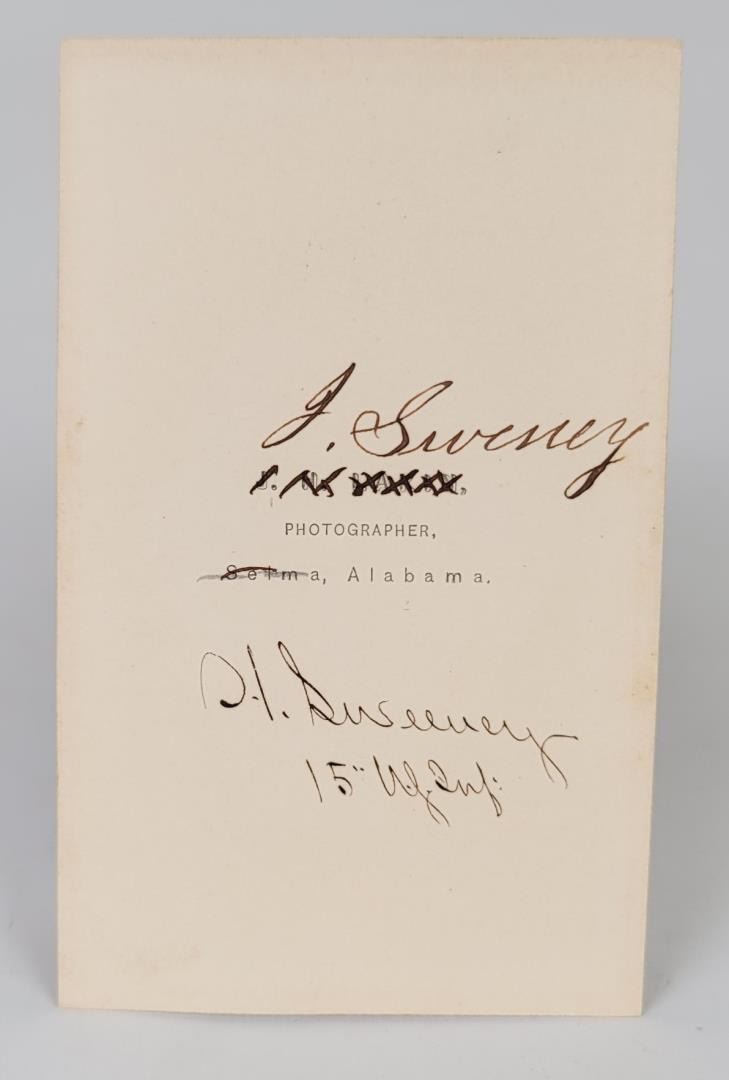 J. Sweeney
PHOTOGRAPHER,
Selma, Alabama.
H. Sweeney
15" U.S. Inf: